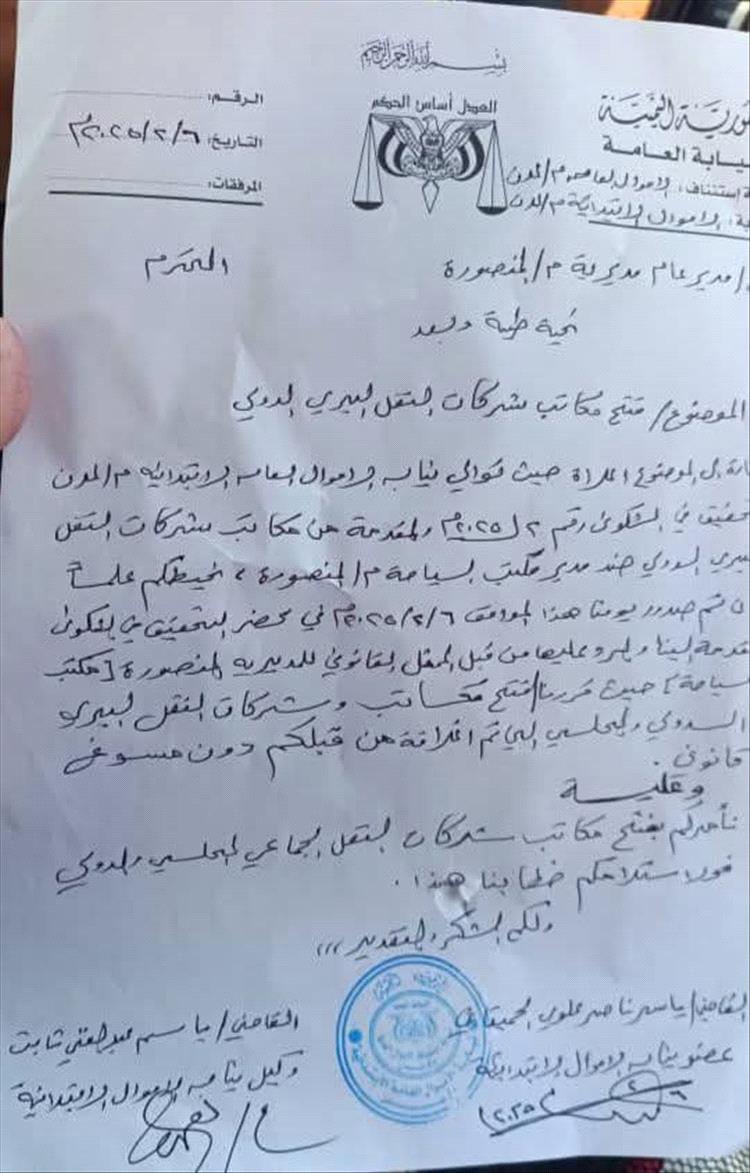 بسم الله الرحمن الرحيم
العدل أساس الحكم
ورية اليمنية
يابة العامة
ة استئناف: الاموال العامة م/عدن
بة: الاموال الابتدائية م/عدن
الرقم:
التاريخ: ٢٠٢٥/٢/٦م
المرفقات:
/ مدير عام مديرية م/المنصورة المحترم
تحية طيبة وبعد
الموضوع/ فتح مكاتب شركات النقل البري الدولي
ارة الى الموضوع اعلاه حيث توالي نيابة الاموال العامه الابتدائيه م/عدن
تحقيق في الشكوى رقم ٢ل٢٠٢٥م والمقدمة من مكاتب شركات النقل
بري الدولي ضد مدير مكتب السياحة م/المنصورة ، نحيطكم علماً
ن تم صدور يومنا هذا الموافق ٢٠٢٥/٢/٦م في محضر التحقيق في الشكوى
قدمة الينا والرد عليها من قبل الممثل القانوني للمديريه المنصورة [مكتب
سياحة] حيث قررنا/فتح مكاتب وشركات النقل البري
الدولي والمحلي التي تم اغلاقة من قبلكم دون مسوغ
قانوني .
وعلية
نأمركم بفتح مكاتب شركات النقل الجماعي المحلي والدولي
فور استلامكم خطابنا هذا .
ولكم الشكر والتقدير ,,,
القاضي/ ياسر ناصر علوي الحميقاني
عضو نيابه الاموال الابتدائية
٢٠٢٥/٢/٦
القاضي/ باسم عبدالغني ثابت
وكيل نيابه الاموال الابتدائية